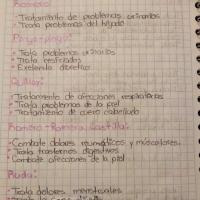 Romero:
• Tratamiento de problemas urinarios
• Trata problemas del hígado
• Trata problemas urinarios
• Trata resfriados
• Excelente diurético
Quillay:
• Tratamiento de afecciones respiratorias
• Trata problemas de la piel
• Tratamiento de cuero cabelludo
Romero - Romero Castilla:
• Combate dolores reumáticos y musculares.
• Trata trastornos digestivos
• Combate afecciones de la piel
Ruda:
• Trata dolores menstruales